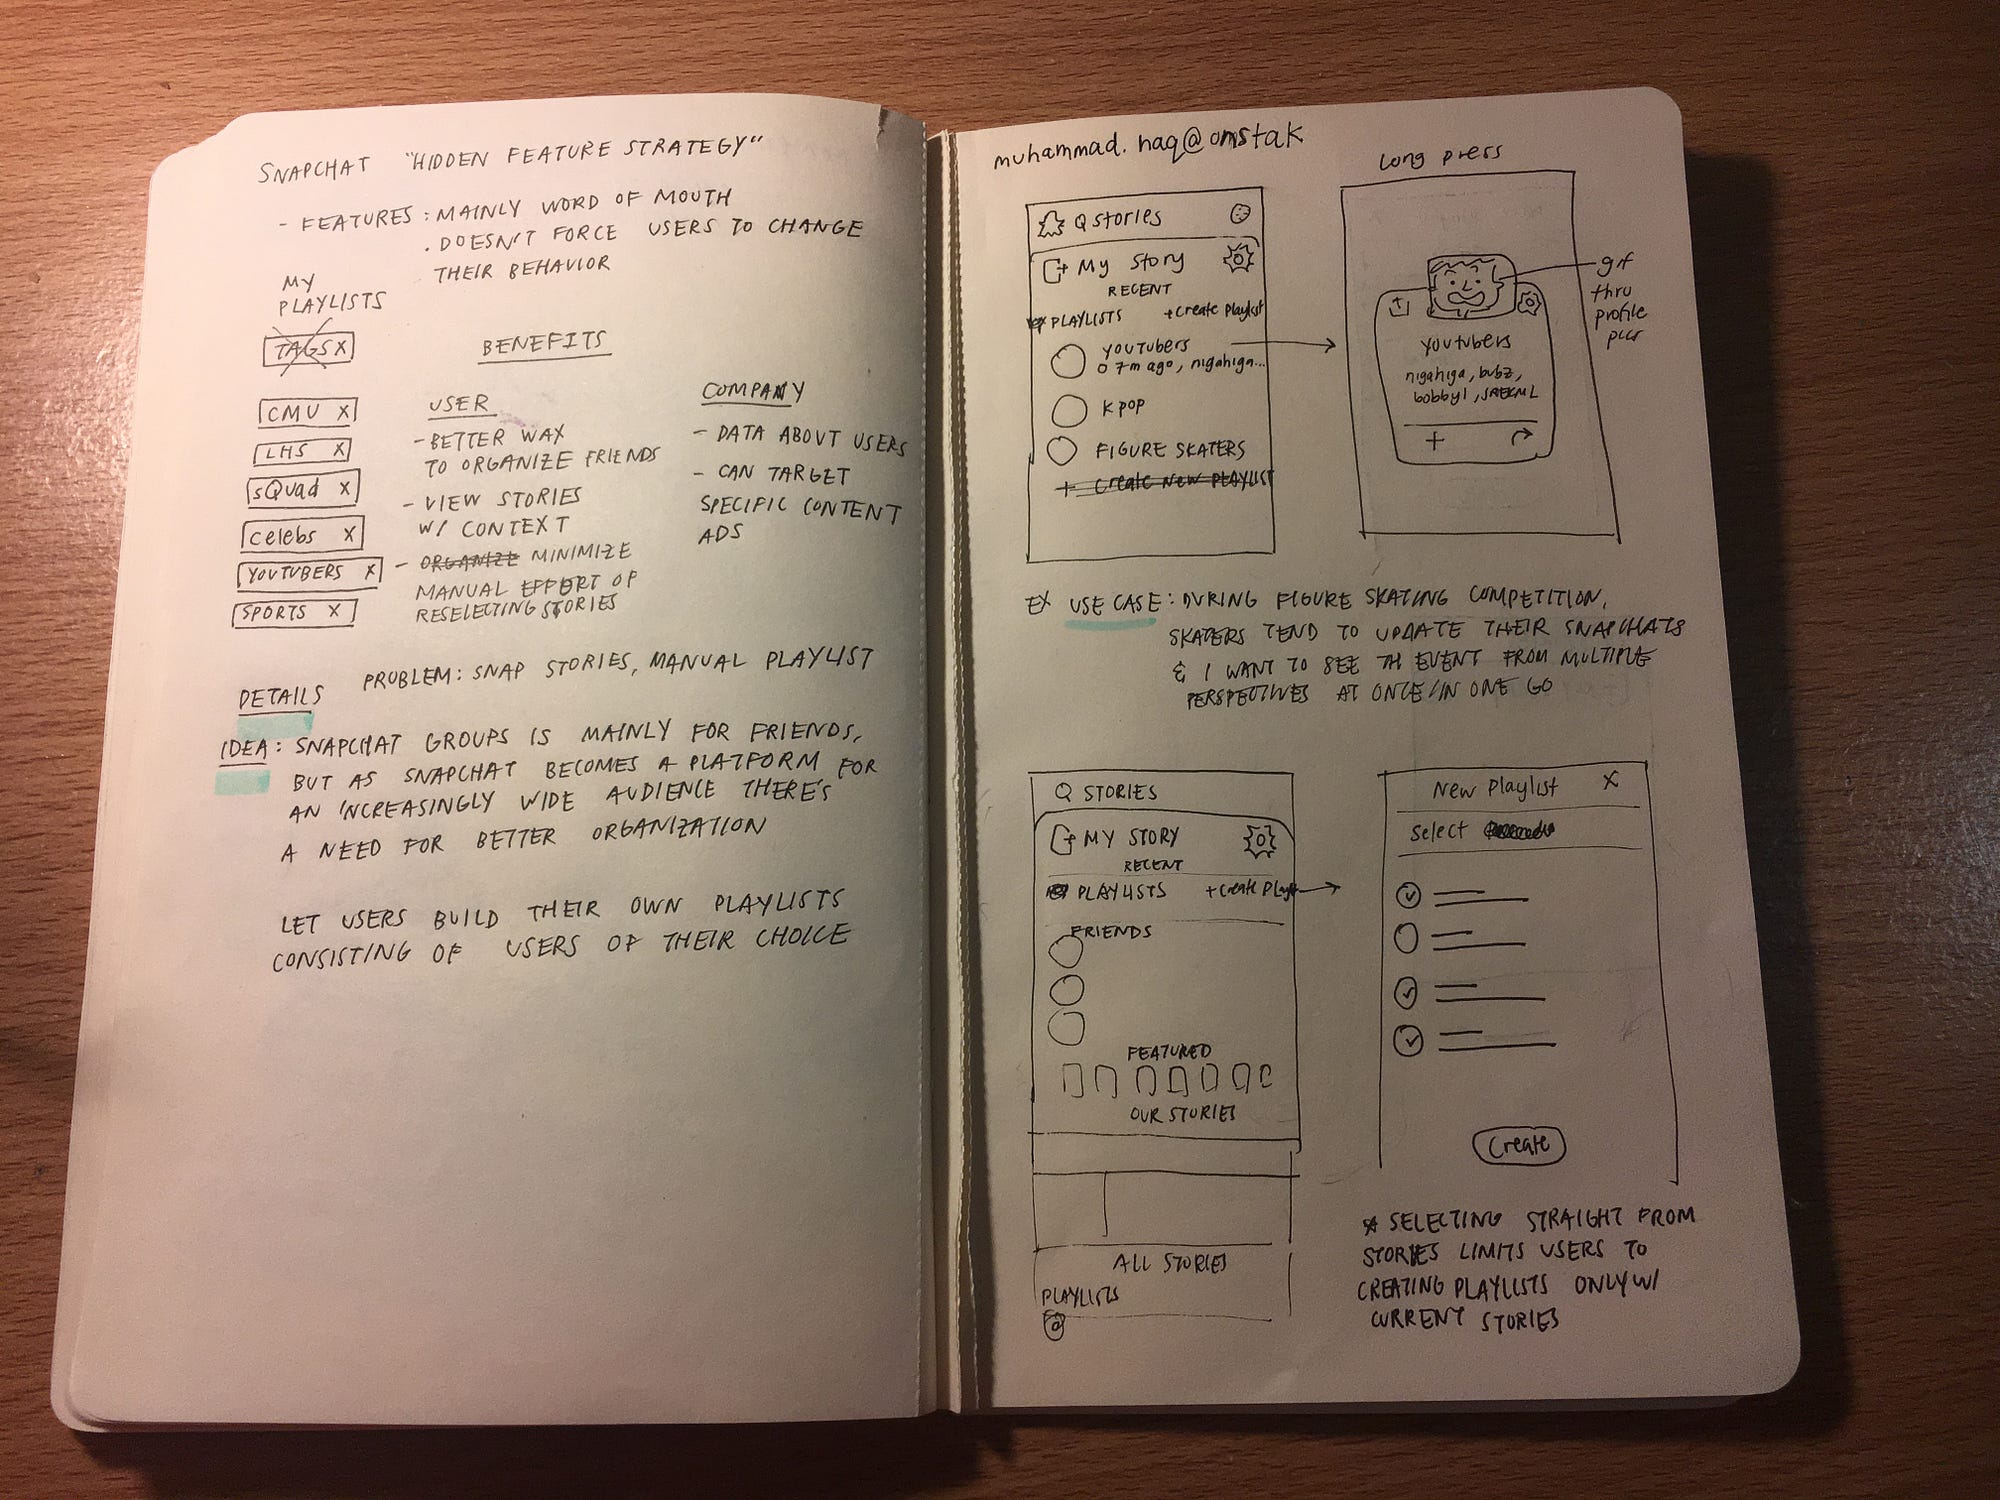 SNAPCHAT "HIDDEN FEATURE STRATEGY"
- FEATURES : MAINLY WORD OF MOUTH
. DOESN'T FORCE USERS TO CHANGE
THEIR BEHAVIOR
MY
PLAYLISTS
TAGS X
CMU X
LHS X
sQuad X
celebs X
YOUTUBERS X
SPORTS X
BENEFITS
USER
- BETTER WAY
TO ORGANIZE FRIENDS
- VIEW STORIES
W/ CONTEXT
- ORGANIZE MINIMIZE
MANUAL EFFORT OF
RESELECTING STORIES
COMPANY
- DATA ABOUT USERS
- CAN TARGET
SPECIFIC CONTENT
ADS
PROBLEM : SNAP STORIES, MANUAL PLAYLIST
DETAILS
IDEA : SNAPCHAT GROUPS IS MAINLY FOR FRIENDS,
BUT AS SNAPCHAT BECOMES A PLATFORM FOR
AN INCREASINGLY WIDE AUDIENCE THERE'S
A NEED FOR BETTER ORGANIZATION
LET USERS BUILD THEIR OWN PLAYLISTS
CONSISTING OF USERS OF THEIR CHOICE
muhammad. haq@
Stories
My Story
RECENT
PLAYLISTS +Create Playlist
YOUTUBERS
7m ago, nigahiga...
K POP
FIGURE SKATERS
+ Create New PLAYLIST
Long press
youtubers
nigahiga, bubz,
+
gif
thru
profile
EX USE CASE : DURING FIGURE SKATING COMPETITION,
SKATERS TEND TO UPDATE THEIR SNAPCHATS
& I WANT TO SEE TH EVENT FROM MULTIPLE
PERSPECTIVES AT ONCE/IN ONE GO
STORIES
MY STORY
RECENT
PLAYLISTS +Create Play
FRIENDS
FEATURED
OUR STORIES
ALL STORIES
PLAYLISTS
New Playlist X
Select
Create
* SELECTING STRAIGHT FROM
STORIES LIMITS USERS TO
CREATING PLAYLISTS ONLY W/
CURRENT STORIES